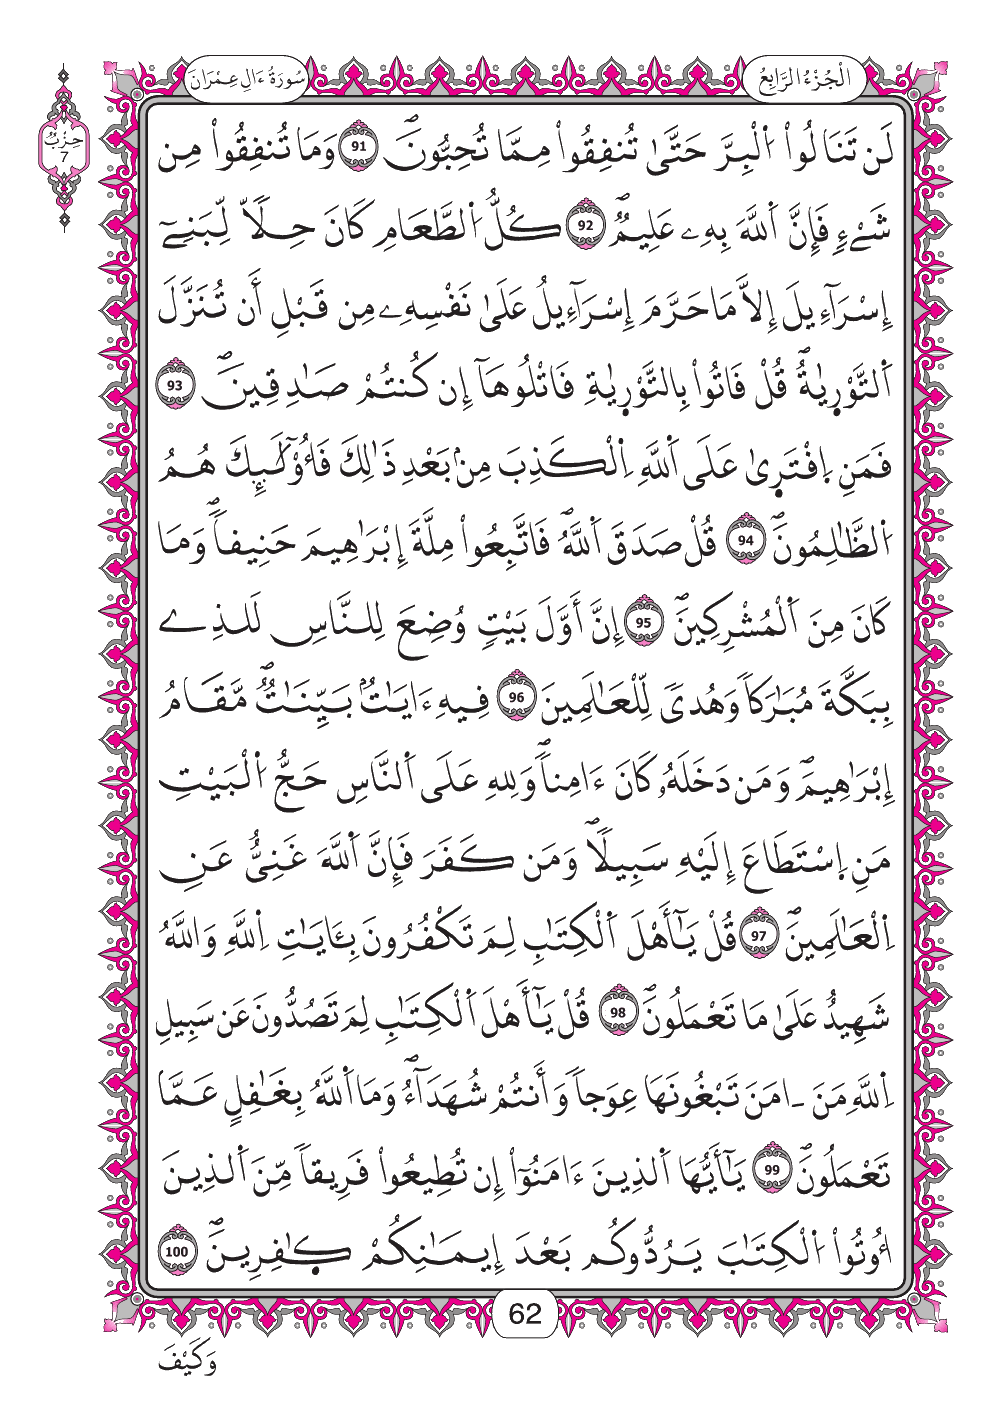 الْجُزْءُ الرَّابِعُ
سُورَةُ ءَالِ عِمْرَانَ
حِزْبٌ
7
لَن تَنَالُواْ اُ۬لْبِرَّ حَتَّىٰ تُنفِقُواْ مِمَّا تُحِبُّونَۖ 91 وَمَا تُنفِقُواْ مِن
شَےْءٖ فَإِنَّ اَ۬للَّهَ بِهِۦ عَلِيمٌۖ 92 كُلُّ اُ۬لطَّعَامِ كَانَ حِلّاٗ لِّبَنِےٓ
إِسْرَآءِيلَ إِلَّا مَا حَرَّمَ إِسْرَآءِيلُ عَلَىٰ نَفْسِهِۦ مِن قَبْلِ أَن تُنَزَّلَ
اَ۬لتَّوْرٜيٰةُۖ قُلْ فَاتُواْ بِالتَّوْرٜيٰةِ فَاتْلُوهَآ إِن كُنتُمْ صَٰدِقِينَۖ 93
فَمَنِ اِ۪فْتَرٜىٰ عَلَى اَ۬للَّهِ اِ۬لْكَذِبَ مِنۢ بَعْدِ ذَٰلِكَ فَأُوْلَٰٓئِكَ هُمُ
اُ۬لظَّٰلِمُونَۖ 94 قُلْ صَدَقَ اَ۬للَّهُۖ فَاتَّبِعُواْ مِلَّةَ إِبْرَٰهِيمَ حَنِيفاٗۖ وَمَا
كَانَ مِنَ اَ۬لْمُشْرِكِينَۖ 95 إِنَّ أَوَّلَ بَيْتٖ وُضِعَ لِلنَّاسِ لَلذِے
بِبَكَّةَ مُبَٰرَكاٗ وَهُدىٗ لِّلْعَٰلَمِينَ 96 فِيهِ ءَايَٰتُۢ بَيِّنَٰتٞۖ مَّقَامُ
إِبْرَٰهِيمَۖ وَمَن دَخَلَهُۥ كَانَ ءَامِناٗۖ وَلِلهِ عَلَى اَ۬لنَّاسِ حَجُّ اُ۬لْبَيْتِ
مَنِ اِ۪سْتَطَاعَ إِلَيْهِ سَبِيلاٗۖ وَمَن كَفَرَ فَإِنَّ اَ۬للَّهَ غَنِيٌّ عَنِ
اِ۬لْعَٰلَمِينَۖ 97 قُلْ يَٰٓأَهْلَ اَ۬لْكِتَٰبِ لِمَ تَكْفُرُونَ بِـَٔايَٰتِ اِ۬للَّهِ وَاللَّهُ
شَهِيدٌ عَلَىٰ مَا تَعْمَلُونَۖ 98 قُلْ يَٰٓأَهْلَ اَ۬لْكِتَٰبِ لِمَ تَصُدُّونَ عَن سَبِيلِ
اِ۬للَّهِ مَنَ ـ۬امَنَ تَبْغُونَهَا عِوَجاٗ وَأَنتُمْ شُهَدَآءُۖ وَمَا اَ۬للَّهُ بِغَٰفِلٍ عَمَّا
تَعْمَلُونَۖ 99 يَٰٓأَيُّهَا اَ۬لذِينَ ءَامَنُوٓاْ إِن تُطِيعُواْ فَرِيقاٗ مِّنَ اَ۬لذِينَ
أُوتُواْ اُ۬لْكِتَٰبَ يَرُدُّوكُم بَعْدَ إِيمَٰنِكُمْ كٰٜفِرِينَۖ 100
62
وَكَيْفَ